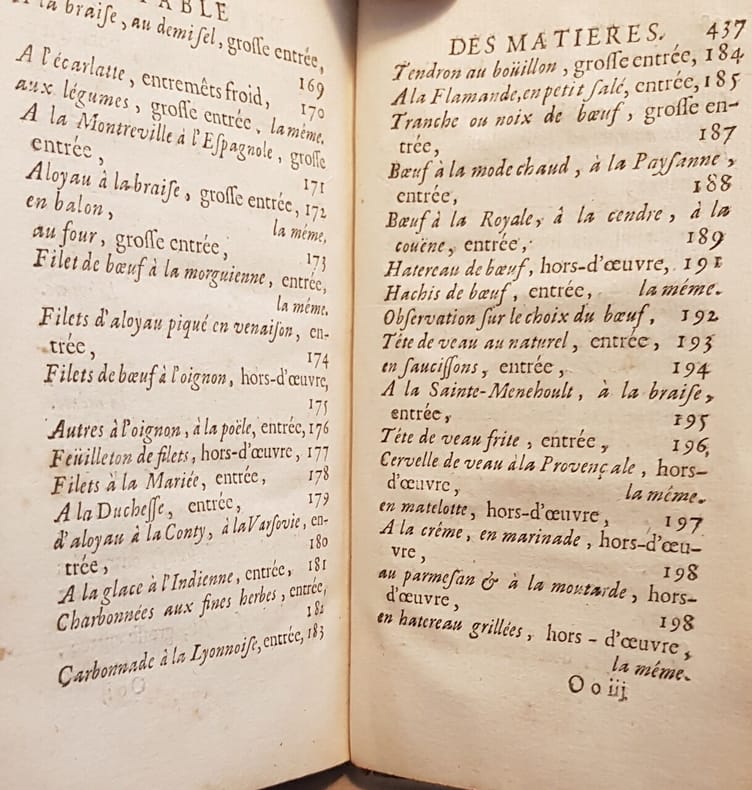 TABLE
A la braiſe, au demiſel, groſſe entrée,
169
A l'écarlatte, entremêts froid, 170
aux légumes, groſſe entrée, la même.
A la Montreville à l'Eſpagnole, groſſe
entrée, 171
Aloyau à la braiſe, groſſe entrée, 172
en balon, la même.
au four, groſſe entrée, 173
Filet de bœuf à la morguienne, entrée,
la même.
Filets d'aloyau piqué en venaiſon, en-
trée, 174
Filets de bœuf à l'oignon, hors-d'œuvre,
175
Autres à l'oignon, à la poële, entrée, 176
Feüilleton de filets, hors-d'œuvre, 177
Filets à la Mariée, entrée, 178
A la Ducheſſe, entrée, 179
d'aloyau à la Conty, à la Varſovie, en-
trée, 180
A la glace à l'Indienne, entrée, 181
Charbonnées aux fines herbes, entrée,
182
Carbonnade à la Lyonnoiſe, entrée, 183
DES MATIERES. 437
Tendron au boüillon, groſſe entrée, 184
A la Flamande, en petit ſalé, entrée, 185
Tranche ou noix de bœuf, groſſe en-
trée, 187
Bœuf à la mode chaud, à la Payſanne,
entrée, 188
Bœuf à la Royale, à la cendre, à la
couëne, entrée, 189
Hatereau de bœuf, hors-d'œuvre, 191
Hachis de bœuf, entrée, la même.
Obſervation ſur le choix du bœuf, 192
Tête de veau au naturel, entrée, 193
en ſauciſſons, entrée, 194
A la Sainte-Menehoult, à la braiſe,
entrée, 195
Tête de veau frite, entrée, 196
Cervelle de veau à la Provençale, hors-
d'œuvre, la même.
en matelotte, hors-d'œuvre, 197
A la crême, en marinade, hors-d'œu-
vre, 198
au parmeſan & à la moutarde, hors-
d'œuvre, 198
en hatereau grillées, hors-d'œuvre,
la même.
O o iij